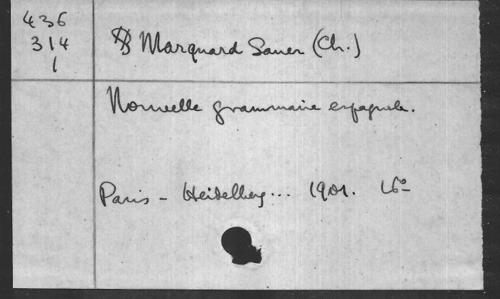 436
314
1
Marquard Sauer (Ch.)
Nouvelle grammaire espagnole.
Paris - Heidelberg... 1901. 16°